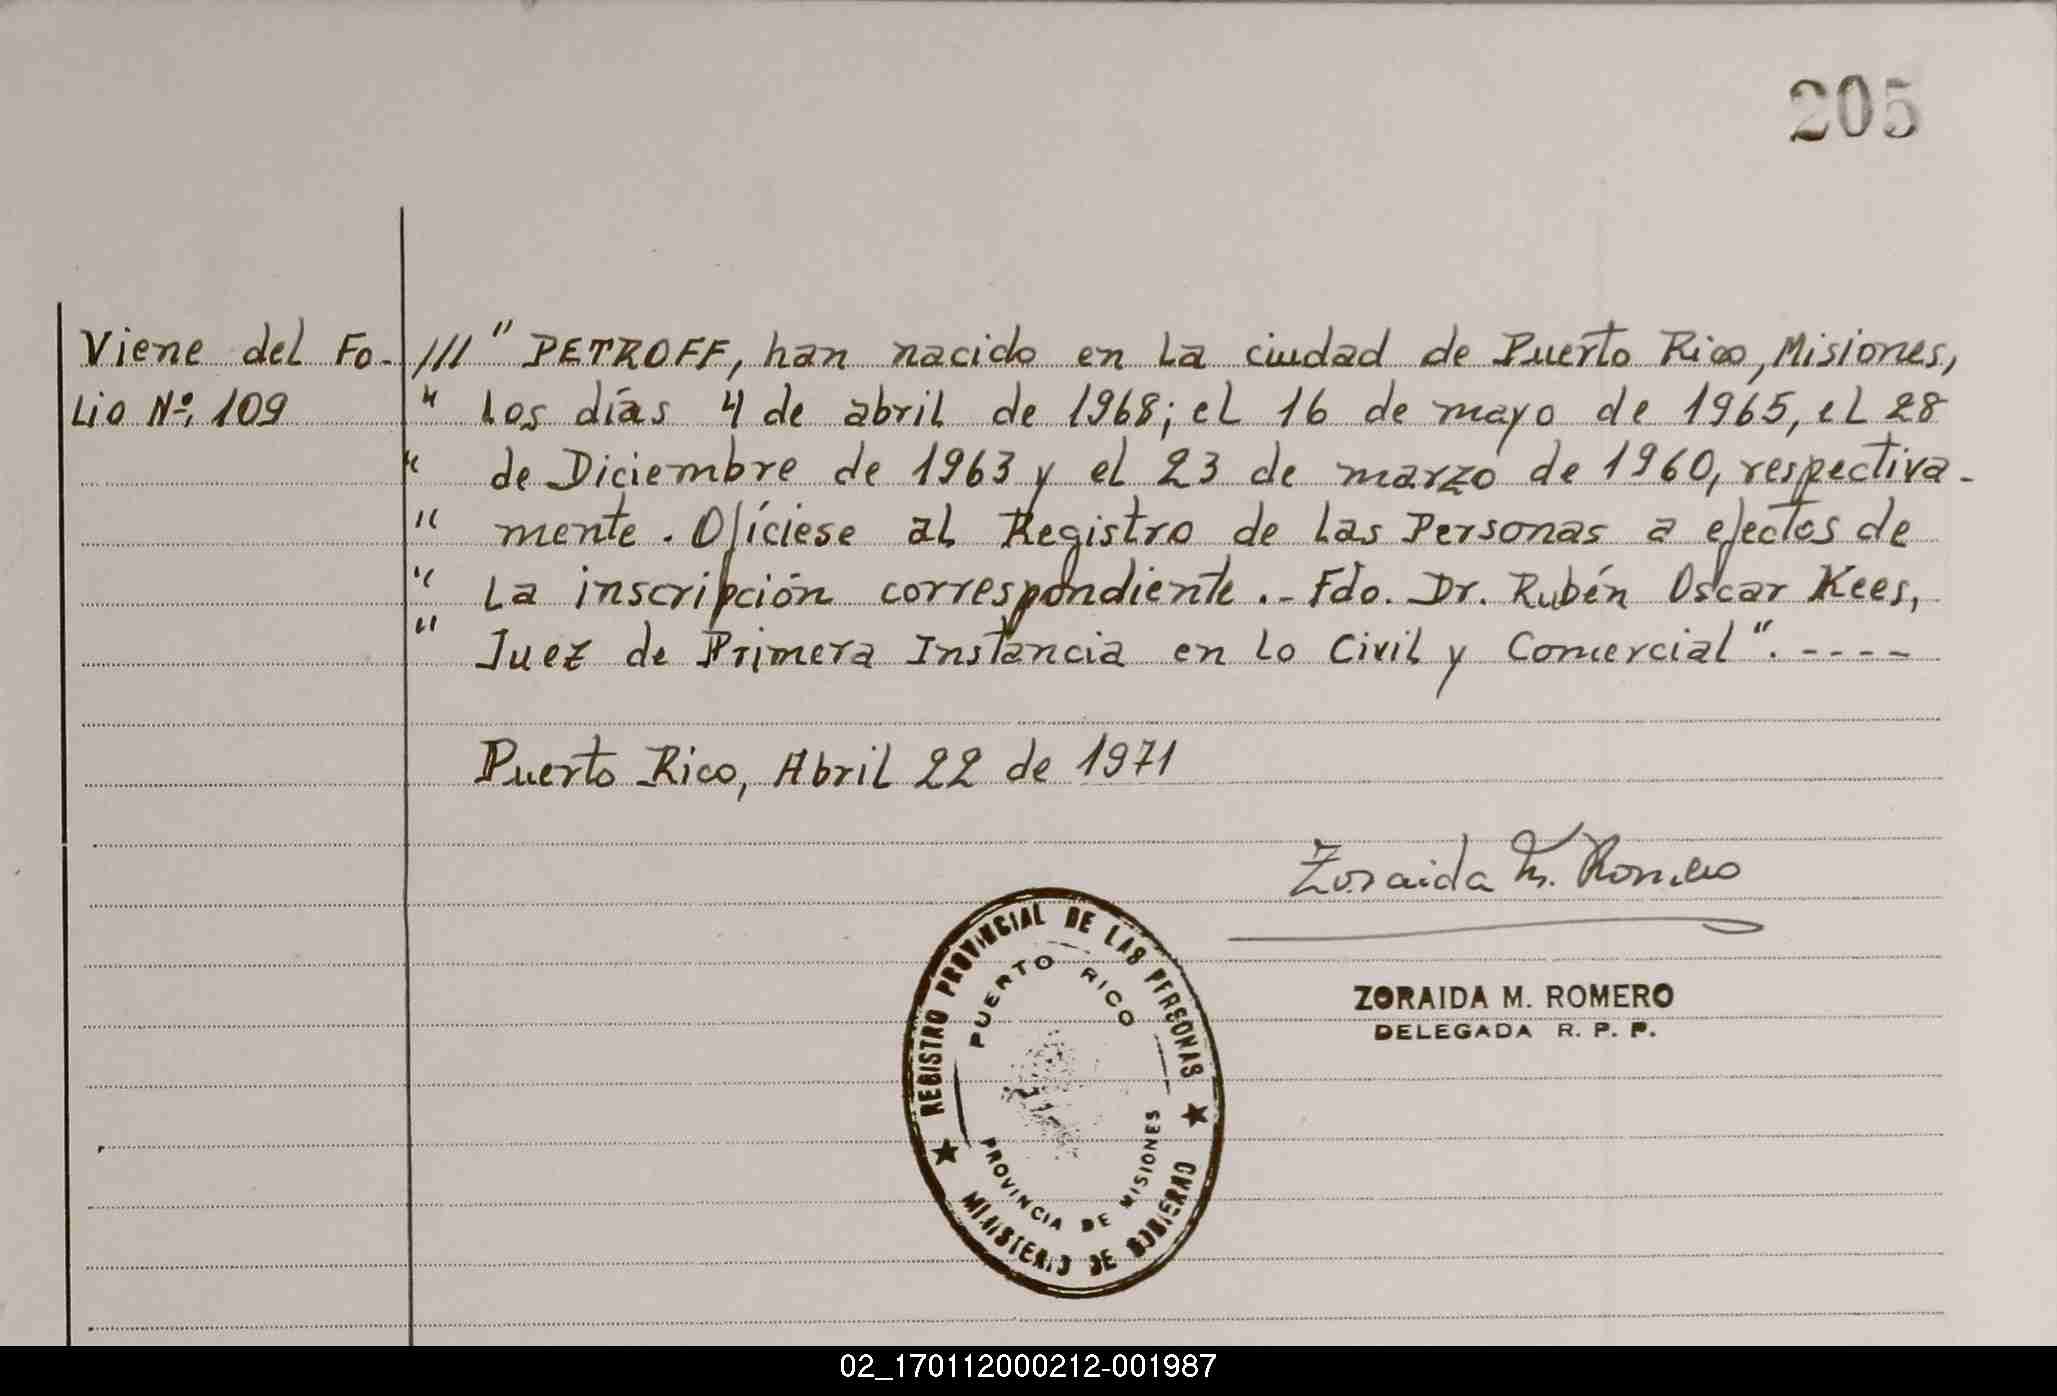 205
Viene del Fo-
lio Nº. 109
/// " PETROFF, han nacido en la ciudad de Puerto Rico, Misiones,
" los días 4 de abril de 1968; el 16 de mayo de 1965, el 28
" de Diciembre de 1963 y el 23 de marzo de 1960, respectiva-
" mente. Ofíciese al Registro de las Personas a efectos de
" la inscripción correspondiente.- Fdo. Dr. Rubén Oscar Kees,
" Juez de Primera Instancia en lo Civil y Comercial". ----
Puerto Rico, Abril 22 de 1971
Zoraida M. Romero
ZORAIDA M. ROMERO
DELEGADA R. P. P.
REGISTRO PROVINCIAL DE LAS PERSONAS
PUERTO RICO
PROVINCIA DE MISIONES
MINISTERIO DE GOBIERNO
02_170112000212-001987